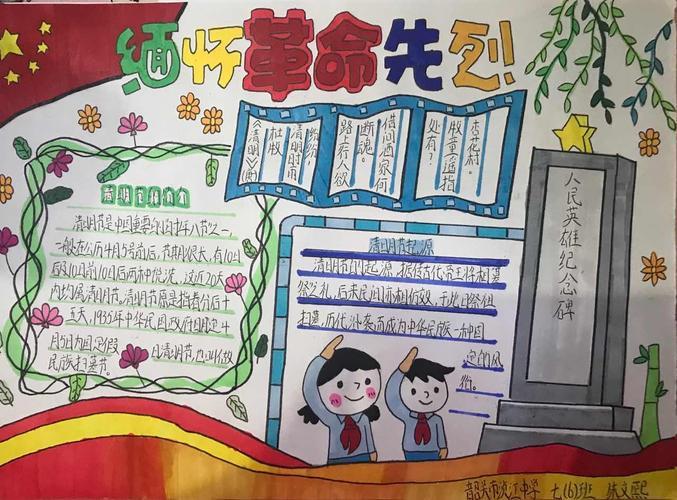 缅怀革命先烈!
《清明》(唐)
杜牧
清明时雨
纷纷,
路上行人欲
断魂。
借问酒家何
处有?
牧童遥指
杏花村。
清明节简介
清明节是中国重要的
一般在公历4月5号前后,节期很长,有10日
前8日后及10日前10日后两种说法,这近20天
内均属清明节。清明节原是指春分后十
五天,1935年中华民国政府明定4
月5日为国定假日清明节,也叫做
民族扫墓节。
清明节起源
清明节的起源,据传古代帝王将相墓
祭之礼,后来民间亦相仿效,于此日祭祖
扫墓,历代沿袭而成为中华民族一种固
定的风
俗。
人民英雄纪念碑
七(6)班